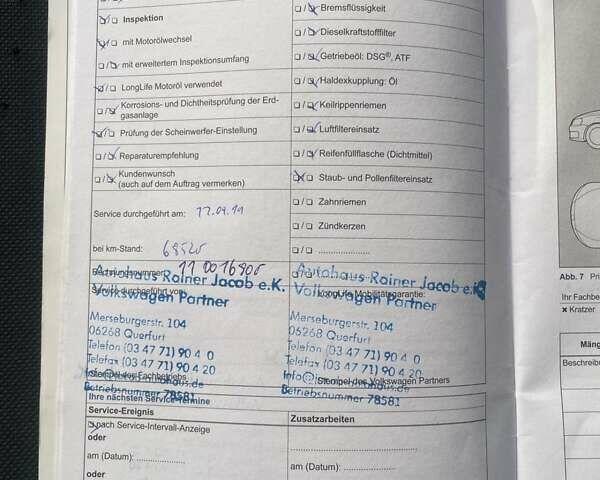 Inspektion
mit Motorölwechsel
mit erweitertem Inspektionsumfang
LongLife Motoröl verwendet
Korrosions- und Dichtheitsprüfung der Erd-
gasanlage
Prüfung der Scheinwerfer-Einstellung
Reparaturempfehlung
Kundenwunsch
(auch auf dem Auftrag vermerken)
Service durchgeführt am: 17.09.19
bei km-Stand: 68520
Autohaus Rainer Jacob e.K.
Volkswagen Partner
Merseburgerstr. 104
06268 Querfurt
Telefon (03 47 71) 90 4 0
Telefax (03 47 71) 90 4 20
Betriebsnummer 78581
Bremsflüssigkeit
Dieselkraftstofffilter
Getriebeöl: DSG®, ATF
Haldexkupplung: Öl
Keilrippenriemen
Luftfiltereinsatz
Reifenfüllflasche (Dichtmittel)
Staub- und Pollenfiltereinsatz
Zahnriemen
Zündkerzen
....................
Autohaus Rainer Jacob e.K.
Volkswagen Partner
LongLife Mobilitätsgarantie:
Merseburgerstr. 104
06268 Querfurt
Telefon (03 47 71) 90 4 0
Telefax (03 47 71) 90 4 20
Stempel des Volkswagen Partners
Betriebsnummer 78581
Ihre nächsten Service-Termine
Service-Ereignis
nach Service-Intervall-Anzeige
oder
am (Datum): ..................
oder
Zusatzarbeiten
am (Datum): ..................
Abb. 7
Ihr Fachbe
x Kratzer
Mäng
Beschreibu